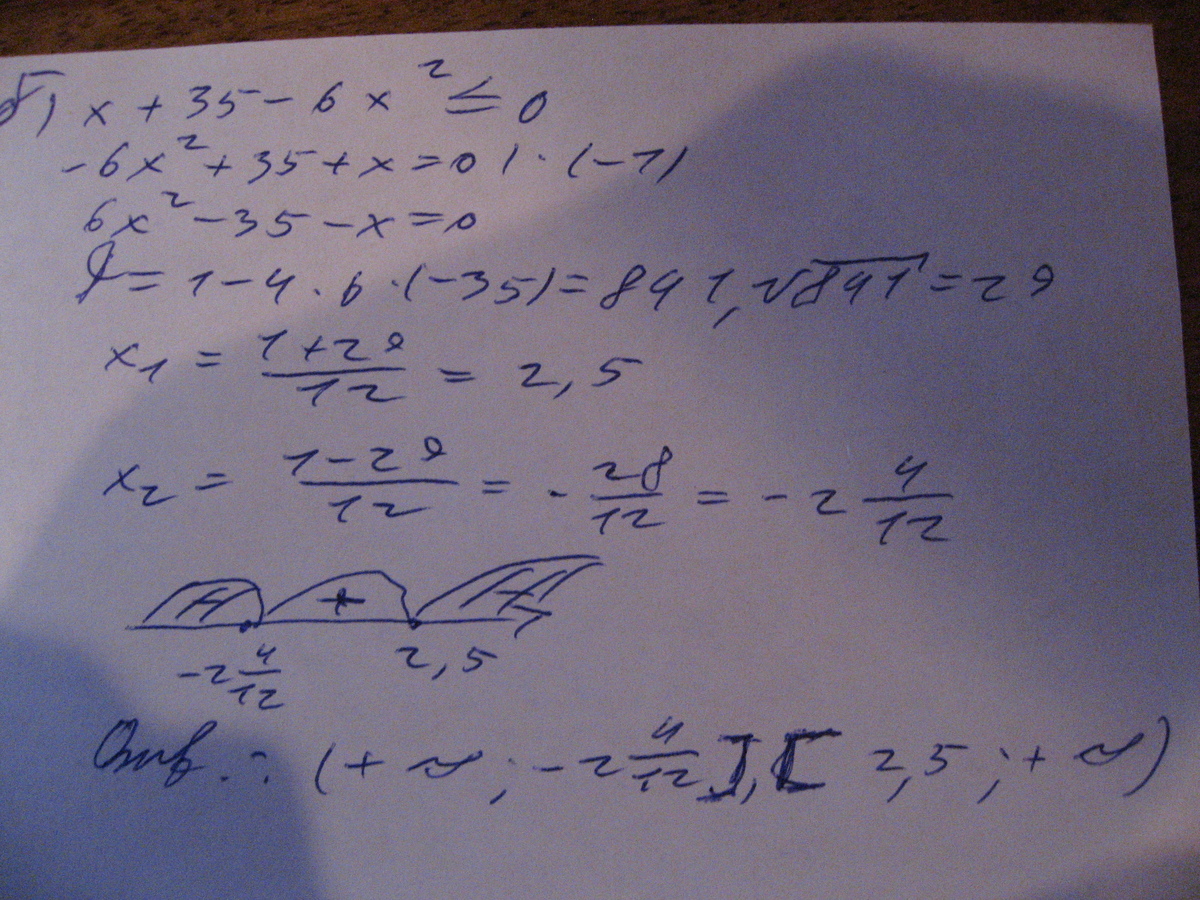 б) x + 35 - 6x² ≤ 0
-6x² + 35 + x = 0 | · (-1)
6x² - 35 - x = 0
D = 1 - 4 · 6 · (-35) = 841, √841 = 29
x₁ = (1+29)/12 = 2,5
x₂ = (1-29)/12 = - 28/12 = -2 4/12
+
-2 4/12 2,5
Отв.: (+∞; -2 4/12], [2,5; +∞)